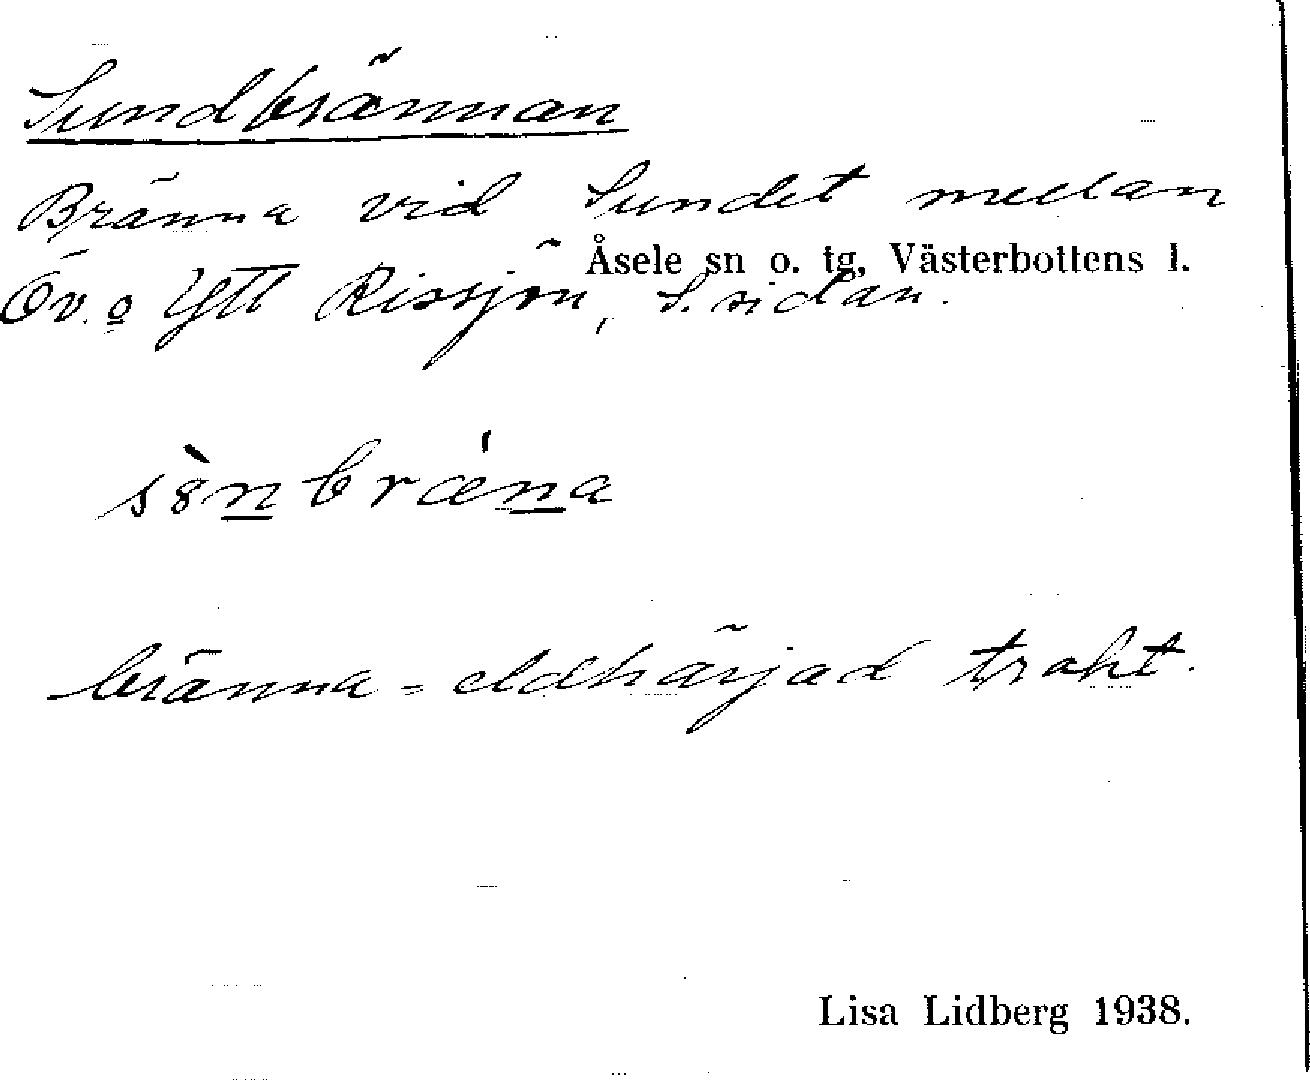 Sundbrännan
Bränna vid Sundet mellan
Åsele sn o. tg, Västerbottens l.
Öv. o Ytt Rissjön, S. sidan.
sònbræ'na
bränna = eldhärjad trakt.
Lisa Lidberg 1938.